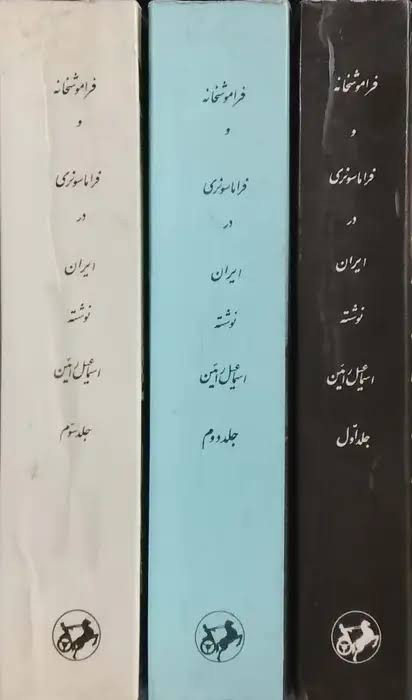 فراموشخانه
و
فراماسونری
در
ایران
نوشته
اسماعیل رائین
جلد اول
فراموشخانه
و
فراماسونری
در
ایران
نوشته
اسماعیل رائین
جلد دوم
فراموشخانه
و
فراماسونری
در
ایران
نوشته
اسماعیل رائین
جلد سوّم